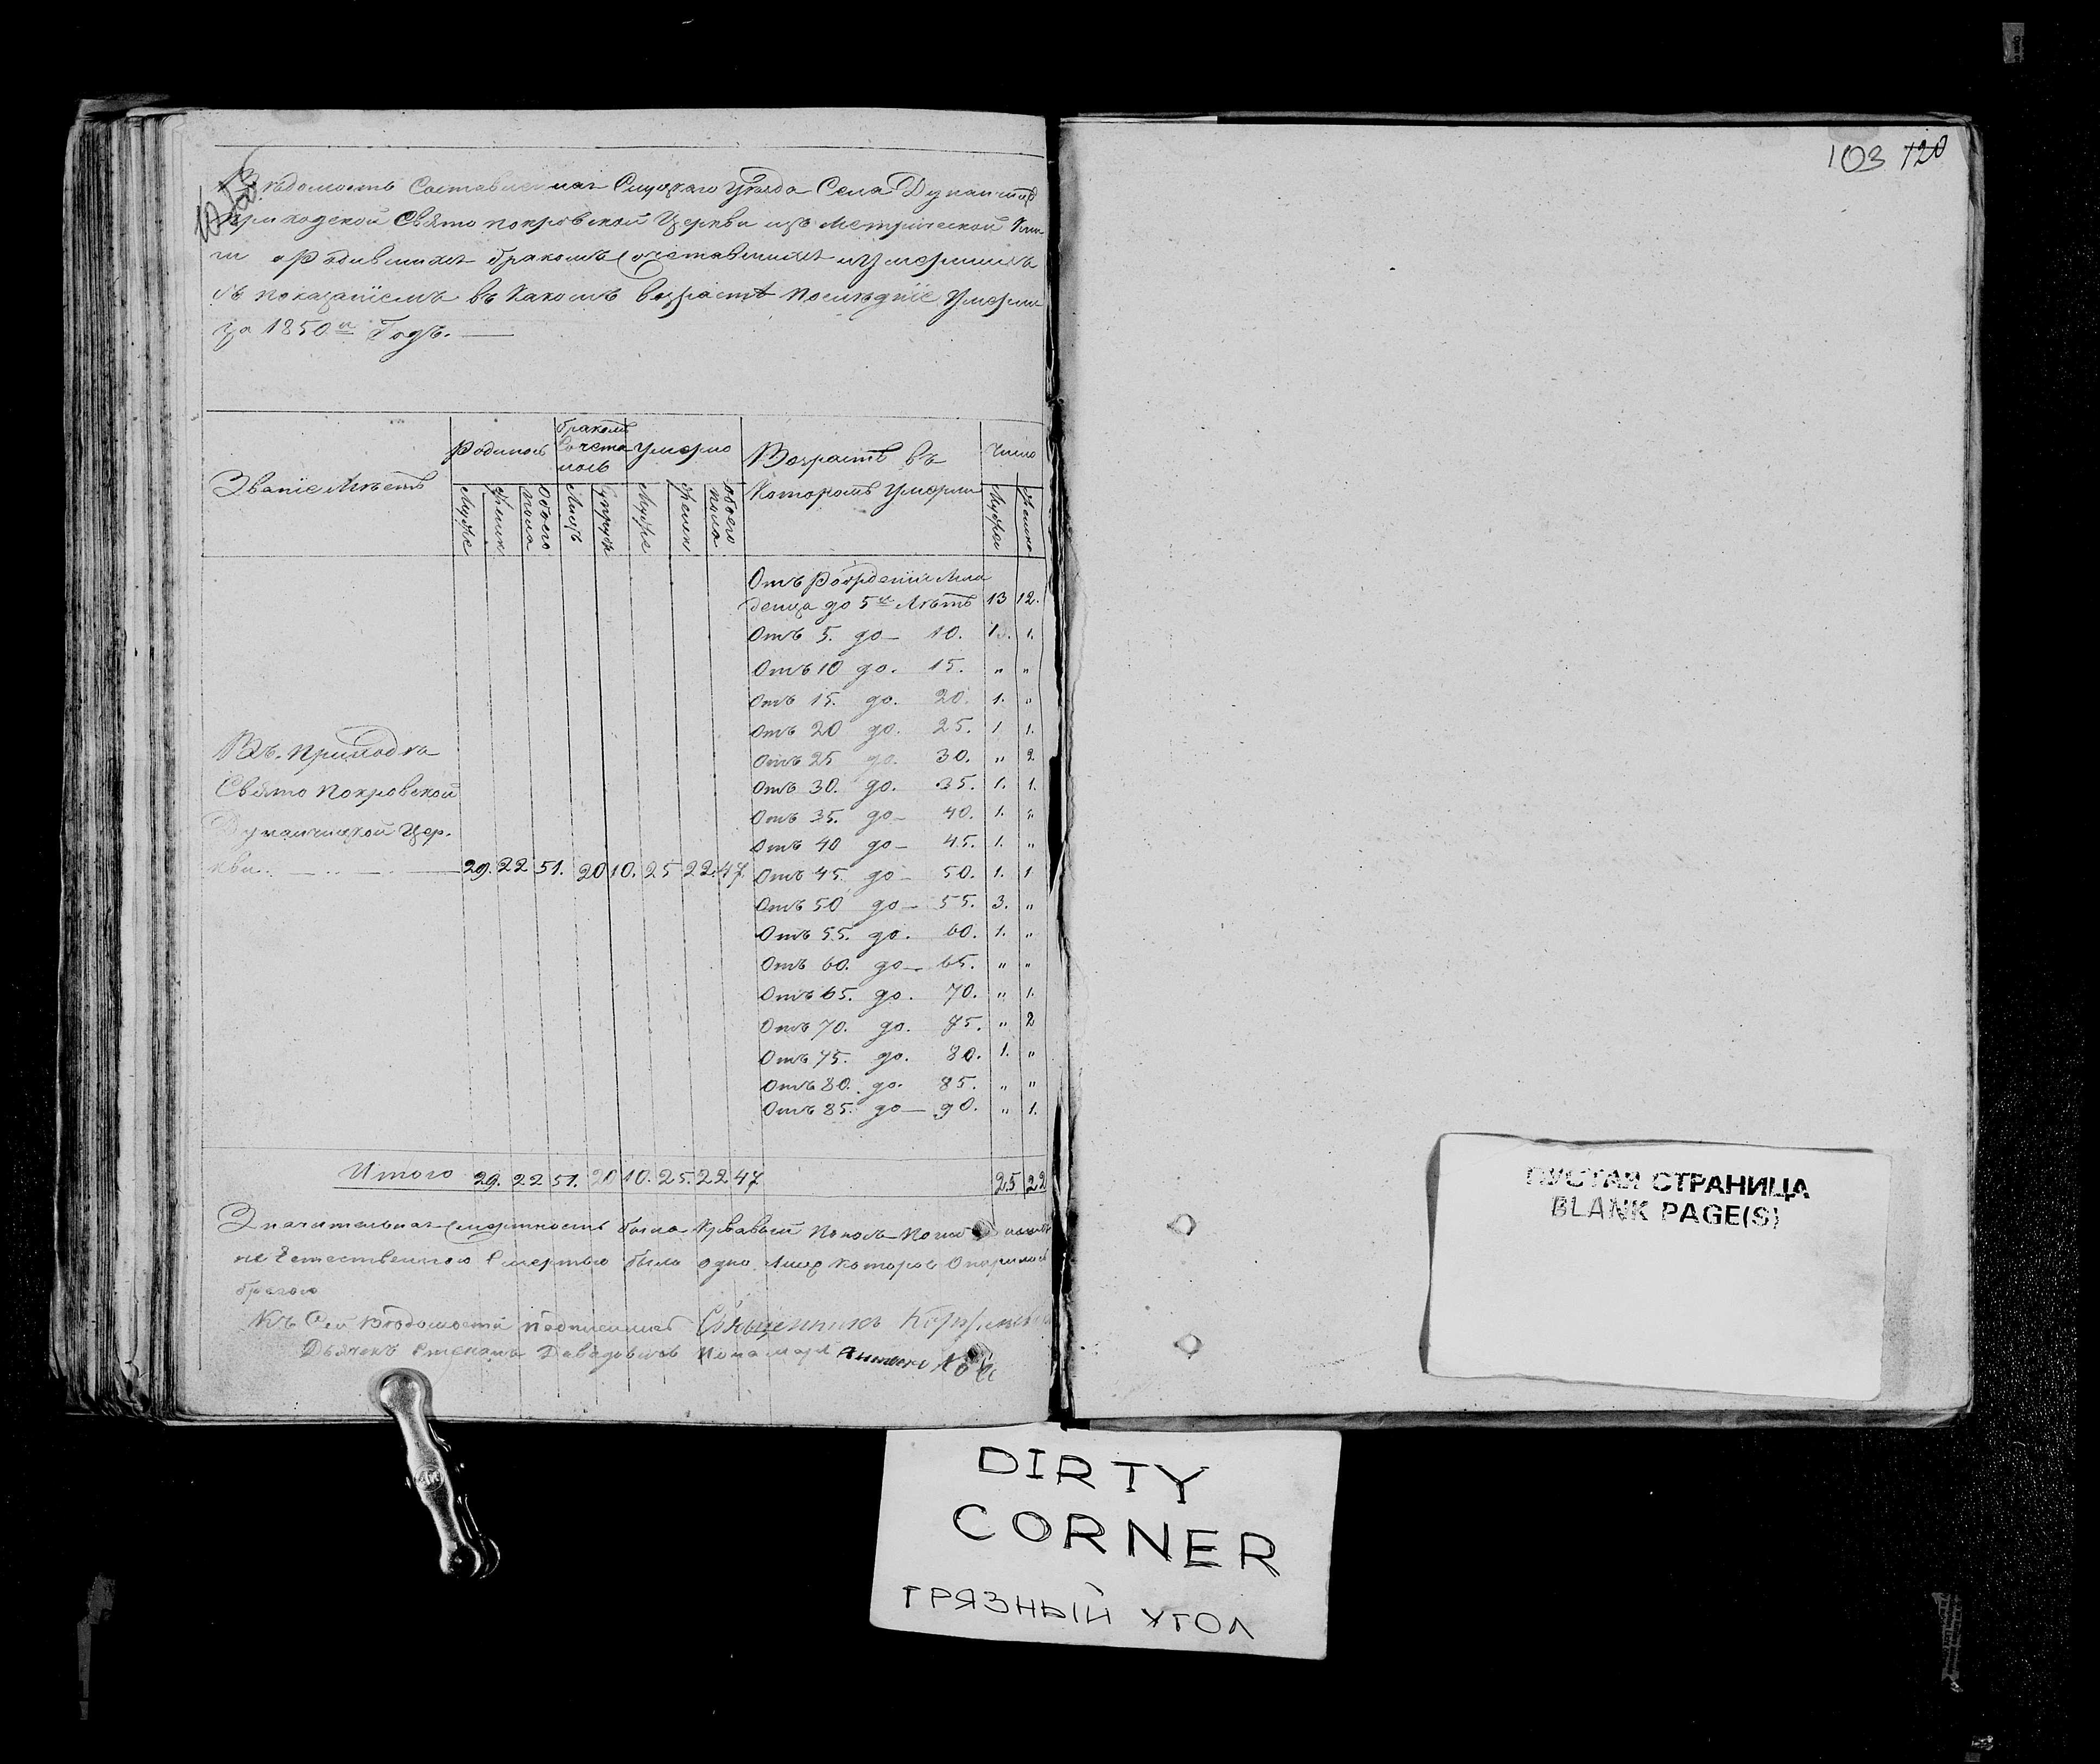 Вѣдомость Составленная Слуцкаго Уѣзда Села
приходской Свято покровской Церкви изъ Метрической Кни
ги о родившихся бракомъ Сочетавшихся и Умершихъ
съ показаніемъ въ какомъ возрастѣ послѣдніе Умерли
за 1850й Годъ.
Званіе Мѣстъ
Родилось
бракомъ Сочета лось
Умерло
Возрастъ въ Которомъ Умерли
Число
Муже
Женск
Обоего пола
Лицъ
Супруж
Муже
Женск
Обоего пола
Мужес
Женска
Отъ Рожденія Мла
денца до 5и Лѣтъ 13 12.
Отъ 5. до 10. 1. 1.
Отъ 10 до. 15. „ „
Отъ 15. до. 20. 1. „
Отъ 20 до. 25. 1 1.
Отъ 25 до. 30. „ 2
Отъ 30. до. 35. 1. 1.
Отъ 35. до 40. 1. „
Отъ 40 до 45. 1. „
Въ Приходѣ
Свято покровской
Цер.
кви 29. 22 51. 20 10. 25 22. 47.
Отъ 45. до 50. 1. 1
Отъ 50 до 55. 3. „
Отъ 55. до. 60. 1. „
Отъ 60. до 65. „ „
Отъ 65. до. 70. „ 1.
Отъ 70. до. 75. „ 2
Отъ 75. до. 80. 1. „
Отъ 80. до. 85. „ „
Отъ 85. до 90. „ 1.
Итого 29. 22 51. 20 10. 25. 22 47 25 22
Значительная Смертность была Кровавый Поносъ
не Естественною Смертью было одно Лице которое Опарилось
брагою
Къ Сей Вѣдомости подписались Священникъ
Дьячекъ Степанъ Пономарь
103 120
ПУСТАЯ СТРАНИЦА
BLANK PAGE(S)
DIRTY
CORNER
ГРЯЗНЫЙ УГОЛ